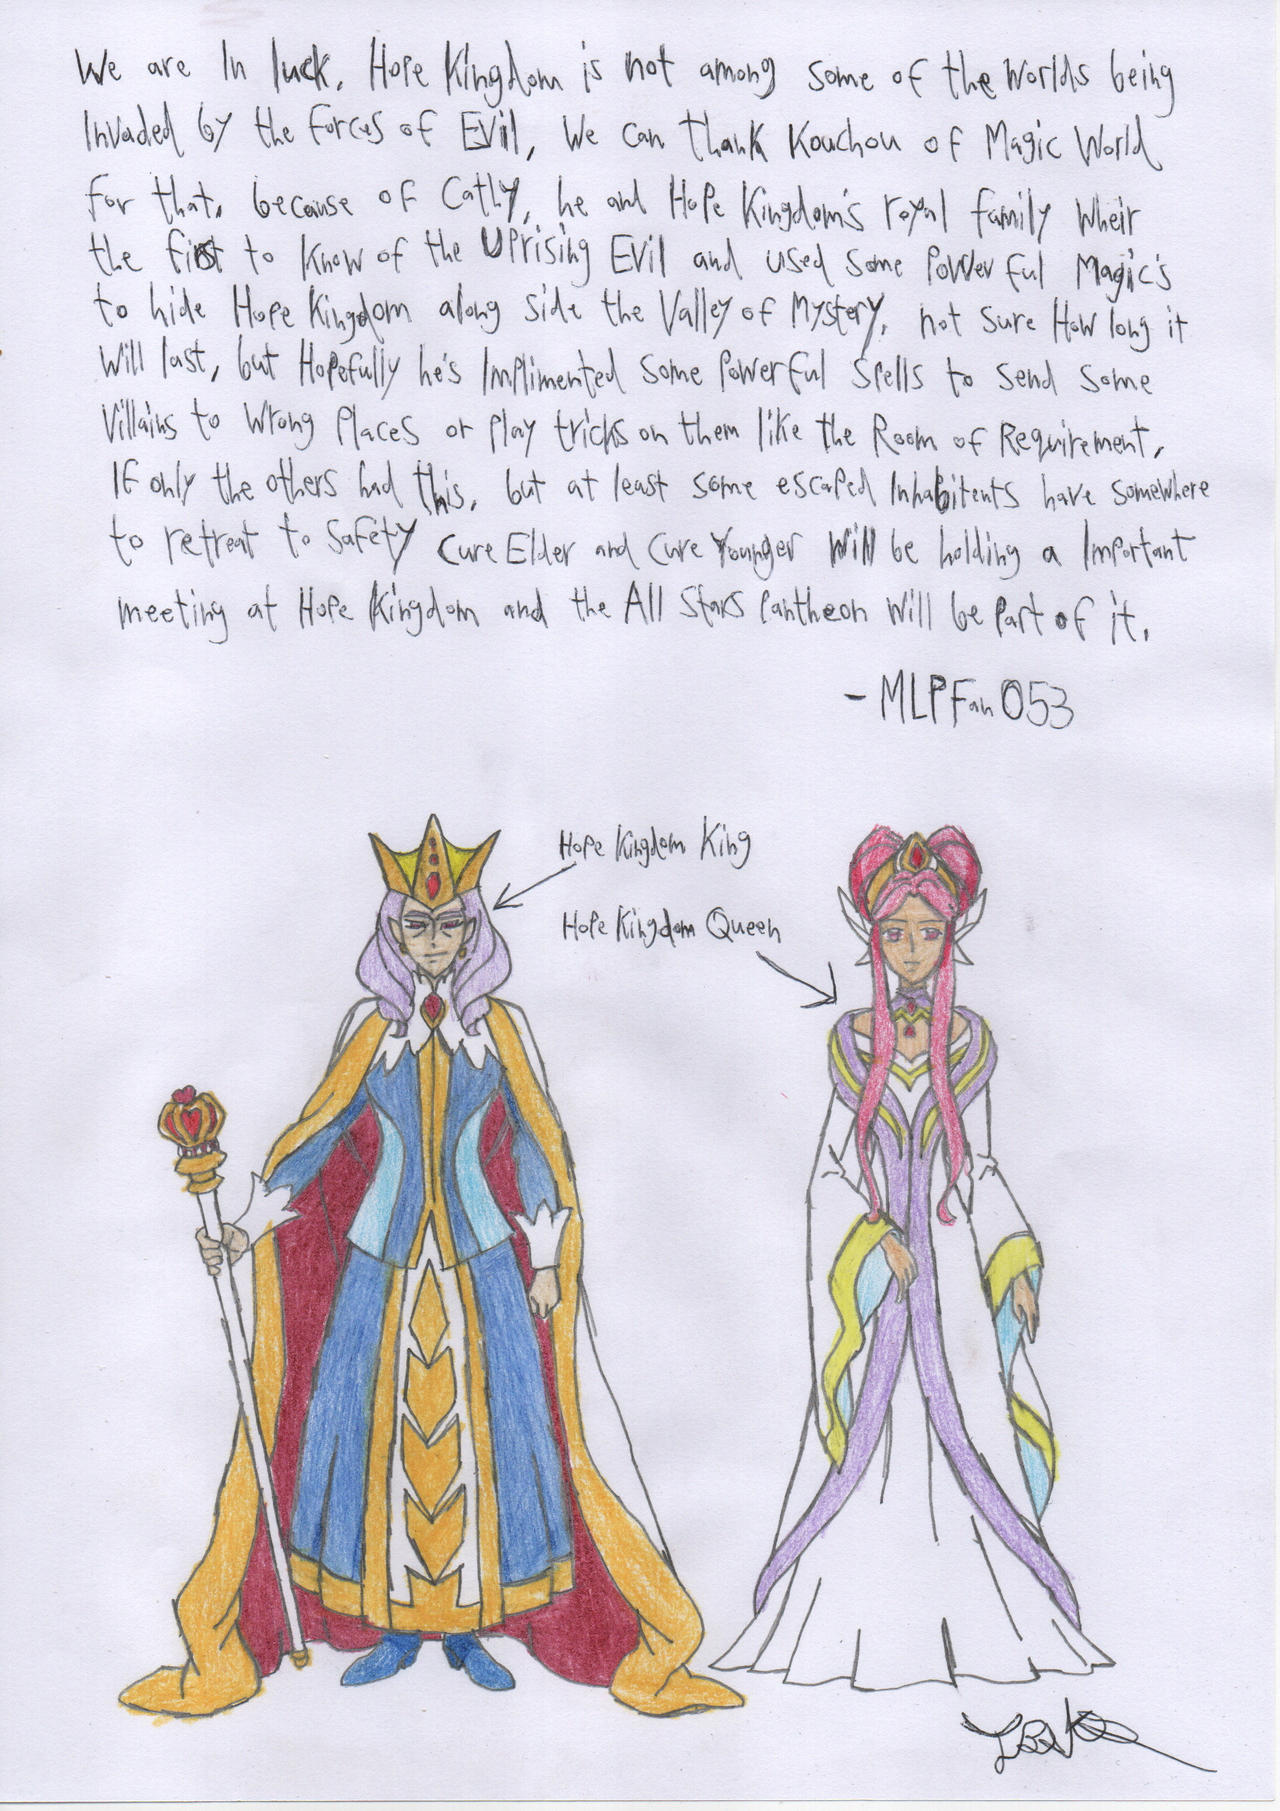 We are In luck. Hope Kingdom is not among some of the worlds being
Invaded by the forces of Evil, We can thank Kouchou of Magic World
for that. because of Catly, he and Hope Kingdom's royal family wheir
the first to know of the Uprising Evil and used some Powerful Magic's
to hide Hope Kingdom along side the Valley of Mystery, not sure How long it
Will last, but Hopefully he's Implimented some Powerful Spells to send some
Villains to wrong Places or Play tricks on them like the Room of Requirement,
If only the others had this, but at least some escaped Inhabitents have somewhere
to retreat to Safety Cure Elder and Cure Younger Will be holding a Important
meeting at Hope Kingdom and the All Stars Pantheon will be Part of it.
- MLPFan053
Hope Kingdom King
Hope Kingdom Queen